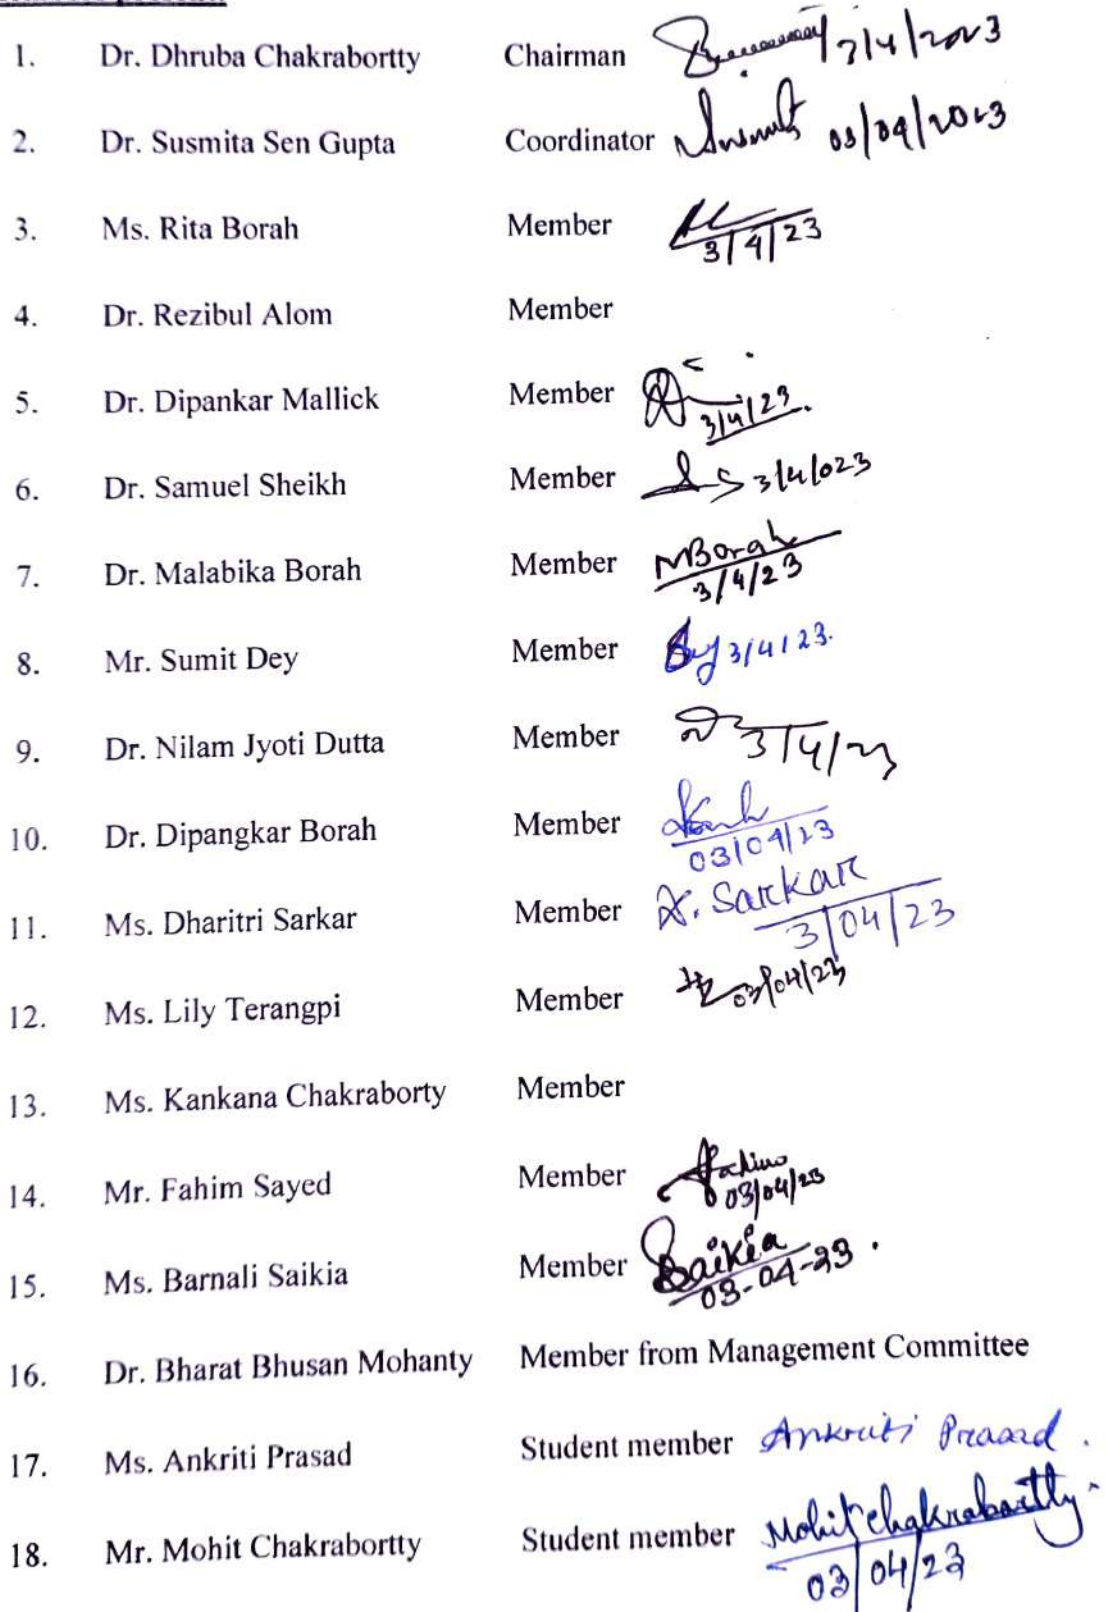 1. Dr. Dhruba Chakrabortty Chairman 3/4/2023
2. Dr. Susmita Sen Gupta Coordinator 03/04/2023
3. Ms. Rita Borah Member 3/4/23
4. Dr. Rezibul Alom Member
5. Dr. Dipankar Mallick Member 3/4/23
6. Dr. Samuel Sheikh Member 3/4/023
7. Dr. Malabika Borah Member MBorah 3/4/23
8. Mr. Sumit Dey Member 3/4/23.
9. Dr. Nilam Jyoti Dutta Member 3/4/23
10. Dr. Dipangkar Borah Member 03/04/23
11. Ms. Dharitri Sarkar Member D. Sarkar 3/04/23
12. Ms. Lily Terangpi Member 03/04/23
13. Ms. Kankana Chakraborty Member
14. Mr. Fahim Sayed Member Fahim 03/04/23
15. Ms. Barnali Saikia Member BSaikia 03-04-23.
16. Dr. Bharat Bhusan Mohanty Member from Management Committee
17. Ms. Ankriti Prasad Student member Ankriti Prasad.
18. Mr. Mohit Chakrabortty Student member Mohit Chakrabortty 03/04/23